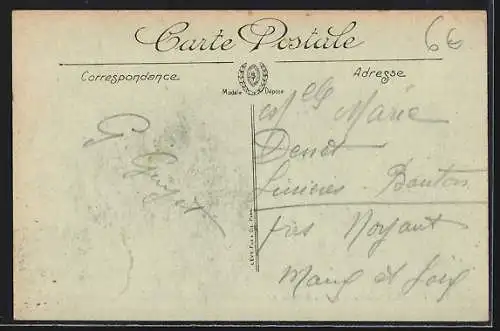 Carte Postale
6€
Correspondance
Adresse
Modèle Déposé
Mlle Marie
Denet
Linières-Bouton
près Noyant
Maine et Loire
G Guyet